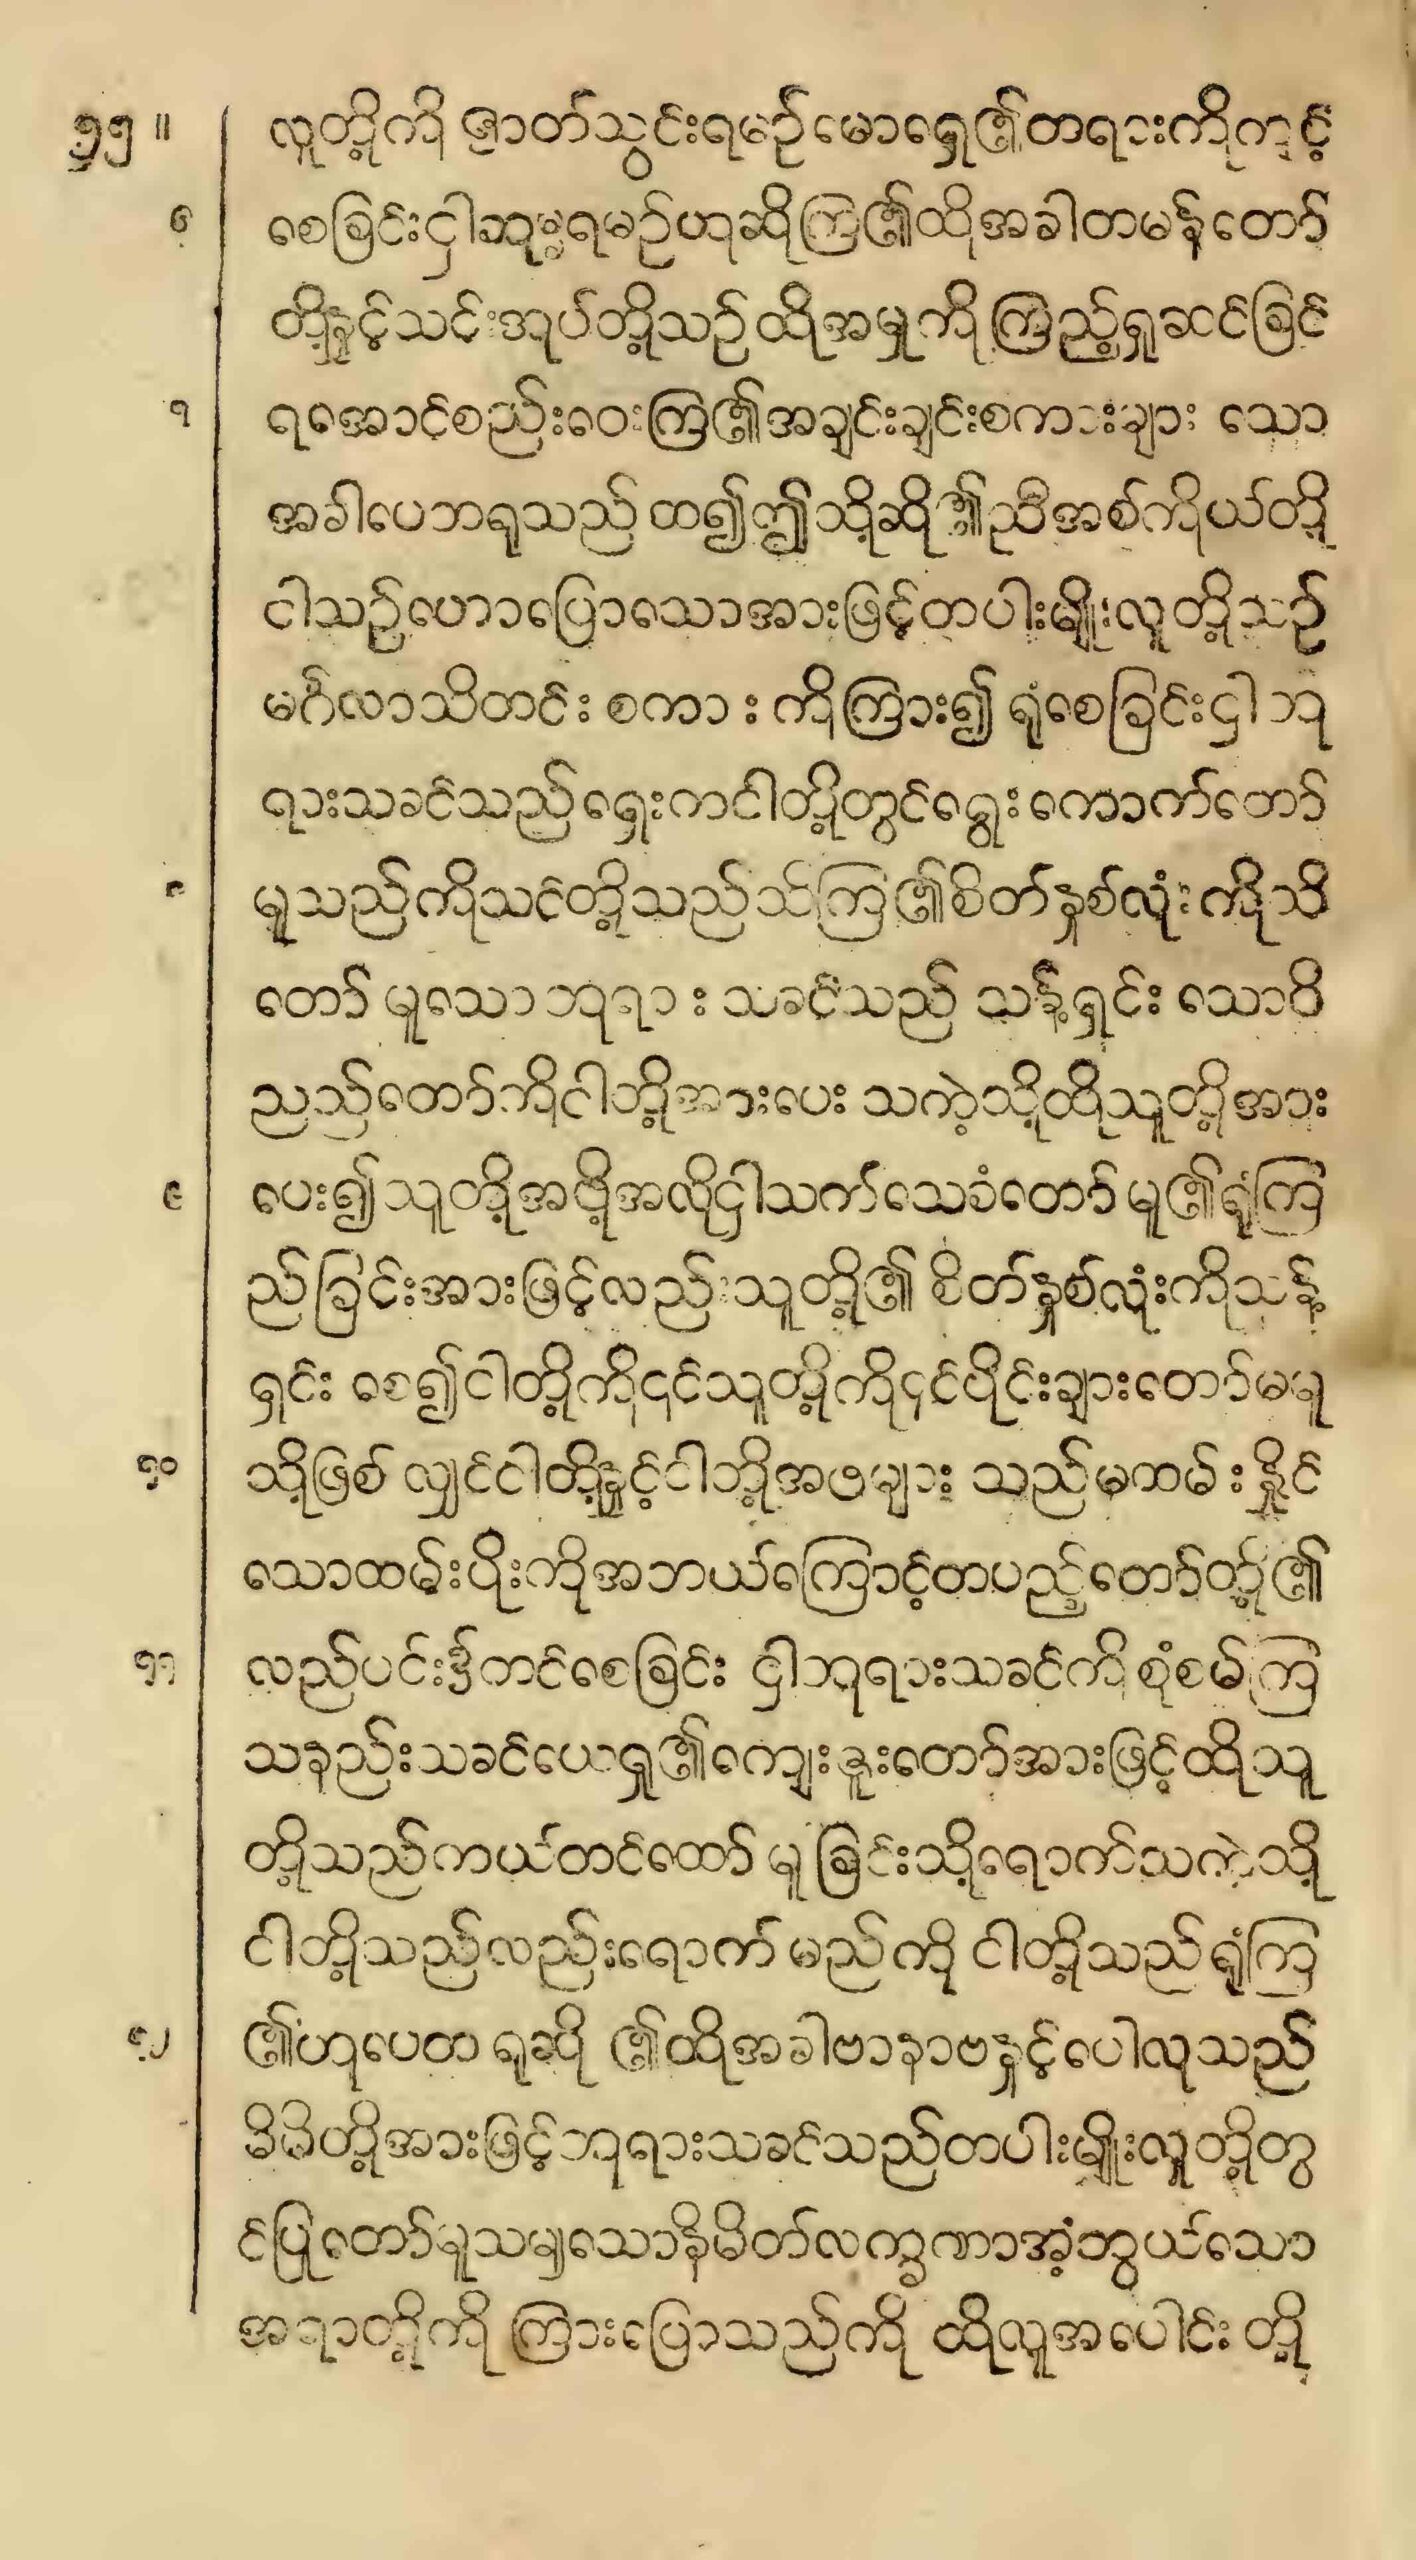 ၅၅။ လူတို့ကို ဇာတ်သွင်းရမဉ်မောရှေ၏တရားကိုကျင့်
၆ စေခြင်းငှါဆုံးမရမဉ်ဟူဆိုကြ၏ထိုအခါတမန်တော်
တို့နှင့်သင်းအုပ်တို့သဉ်ထိုအမှုကိုကြည့်ရှုဆင်ခြင်
၇ ရအောင်စည်းဝေးကြ၏အချင်းချင်းစကားများ သော
အခါပေဘရုသည် ထ၍ဤသို့ဆို၏ညီအစ်ကိုယ်တို့
ငါသဉ်ဟောပြောသောအားဖြင့်တပါးမျိုးလူတို့သဉ်
မင်္ဂလာသိတင်း စကား ကိုကြား၍ ရုံစေခြင်းငှါ ဘု
ရားသခင်သည်ရှေးကငါတို့တွင်ရွေးကောက်တော်
၈ မူသည်ကိုသင်တို့သည်သိကြ၏စိတ်နှစ်လုံးကိုသိ
တော်မူသော ဘုရား သခင်သည် သန့်ရှင်း သောဝိ
ညည်တော်ကိုငါတို့အားပေး သကဲ့သို့ထိုသူတို့အား
၉ ပေး၍သူတို့အဖို့အလိုငှါသက်သေခံတော်မူ၏ရုံကြ
ည်ခြင်းအားဖြင့်လည်းသူတို့၏ စိတ်နှစ်လုံးကိုသန့်
ရှင်း စေ၍ငါတို့ကို၎င်သူတို့ကို၎င်ပိုင်းချားတော်မမူ
၅၀ သို့ဖြစ် လျှင်ငါတို့နှင့်ငါတို့အဖများ သည်မထမ်းနိုင်
သောထမ်းပိုးကိုအဘယ်ကြောင့်တပည့်တော်တို့၏
၅၅ လည်ပင်း၌တင်စေခြင်း ငှါဘုရားသခင်ကိုစုံစမ်ကြ
သနည်းသခင်ယေရှု၏ကျေးဇူးတော်အားဖြင့်ထိုသူ
တို့သည်ကယ်တင်တော်မူခြင်းသို့ရောက်သကဲ့သို့
ငါတို့သည်လည်းရောက်မည်ကို ငါတို့သည်ရုံကြ
၅၂ ၏ဟုပေတရုဆို၏ထိုအခါဗာနာဗနှင့်ပေါလုသည်
မိမိတို့အားဖြင့်ဘုရားသခင်သည်တပါးမျိုးလူတို့တွ
င်ပြုတော်မူသမျှသောနိမိတ်လက္ခဏာအံ့ဘွယ်သော
အရာတို့ကို ကြားပြောသည်ကို ထိုလူအပေါင်း တို့